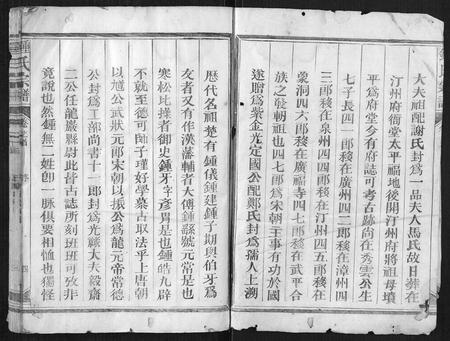 大夫祖配謝氏封為一品夫人馬氏故日葬在
汀州府衙堂太平福地後開汀州府將祖母墳
平為府堂今有府誌可考古跡尚在秀雲公生
七子長四一郎移在廣州四二郎移在漳州四
三郎移在泉州四四郎移在汀州四五郎移在
象洞四六郎移在廣福寺四七郎移在武平合
族之發朝祖也四七郎為宋朝主事有功於國
遂贈為紫金光左國公配鄭氏封為孺人上溯
歷代名祖楚有鍾儀鍾建鍾子期與伯牙為
友者又有作漢藩輔者大傅鍾繇號元常是也
寒松比操者御史鍾牙字彥胃是也鍾皓九辟
不就至德可師士瑾好學慕古取法乎上唐朝
以馗公武狀元郎宋朝以振公為龍元帝常德
公封為工部尚書十一郎封為光祿大夫毅齋
二公任龍巖縣尉此皆古誌所刻班班可攷非
竟說也然鍾無二姓卽一脈俱要相恤也獨怪
鍾氏宗譜
卷之首
序
四